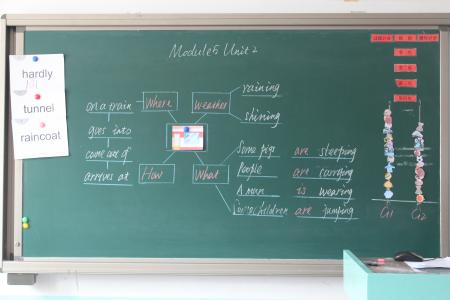 Module5 Unit 2
hardly
tunnel
raincoat
on a train
goes into
come out of
arrives at
Where
weather
raining
shining
How
What
Some pigs are sleeping
People are carrying
A man is wearing
children are jumping
G1 G2